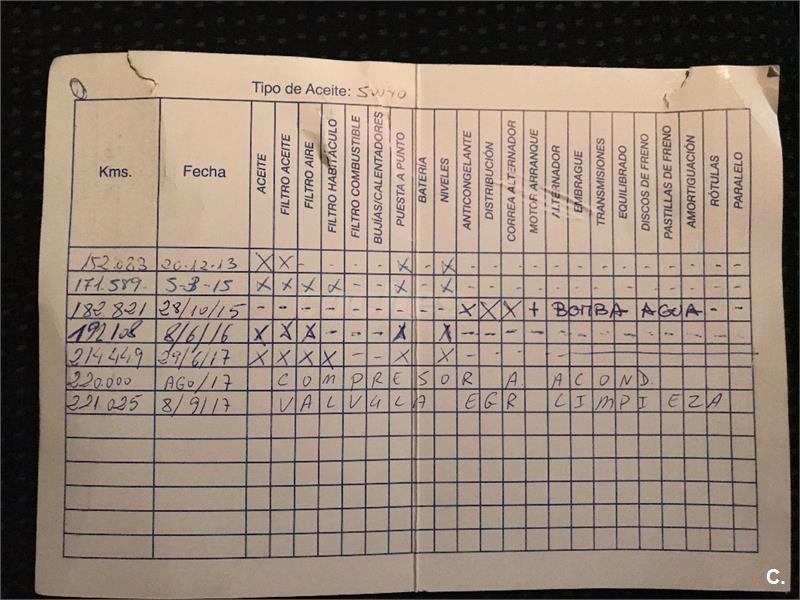 Tipo de Aceite: 5W40
Kms. Fecha ACEITE FILTRO ACEITE FILTRO AIRE FILTRO HABITÁCULO FILTRO COMBUSTIBLE BUJÍAS/CALENTADORES PUESTA A PUNTO BATERÍA NIVELES ANTICONGELANTE DISTRIBUCIÓN CORREA ALTERNADOR MOTOR ARRANQUE ALTERNADOR EMBRAGUE TRANSMISIONES EQUILIBRADO DISCOS DE FRENO PASTILLAS DE FRENO AMORTIGUACIÓN RÓTULAS PARALELO
152.083 20-12-13 X X - - - - X - X - - - - - - - - - - - - -
171.589. 5-3-15 X X X X - - X - X - - - - - - - - - - - - -
182.821 28/10/15 - - - - - - - - - X X X + BOMBA AGUA -
192108 8/6/16 X X X - - - X - X - - - - - - - - - - - - -
214.449 29/6/17 X X X X - - X - X - - - - - - - - - - - - -
220.000 AGO/17 COMPRESOR A. ACOND.
221.025 8/9/17 VALVULA EGR LIMPIEZA
C.